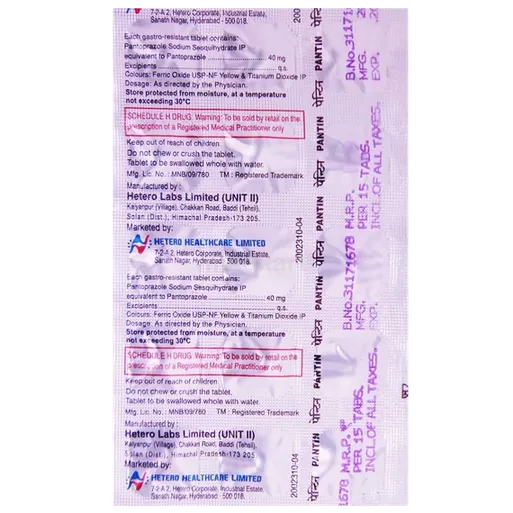 7-2-A 2, Hetero Corporate, Industrial Estate,
Sanath Nagar, Hyderabad - 500 018.
Each gastro-resistant tablet contains:
Pantoprazole Sodium Sesquihydrate IP
equivalent to Pantoprazole 40 mg
Excipients q.s.
Colours: Ferric Oxide USP-NF Yellow & Titanium Dioxide IP
Dosage: As directed by the Physician.
Store protected from moisture, at a temperature
not exceeding 30°C
SCHEDULE H DRUG Warning: To be sold by retail on the
prescription of a Registered Medical Practitioner only
Keep out of reach of children
Do not chew or crush the tablet.
Tablet to be swallowed whole with water.
Mfg. Lic. No.: MNB/09/780 TM : Registered Trademark
Manufactured by :
Hetero Labs Limited (UNIT II)
Kalyanpur (Village), Chakkan Road, Baddi (Tehsil),
Solan (Dist.), Himachal Pradesh-173 205.
Marketed by:
HETERO HEALTHCARE LIMITED
7-2-A 2, Hetero Corporate, Industrial Estate,
Sanath Nagar, Hyderabad - 500 018.
Each gastro-resistant tablet contains:
Pantoprazole Sodium Sesquihydrate IP
equivalent to Pantoprazole 40 mg
Excipients q.s.
Colours: Ferric Oxide USP-NF Yellow & Titanium Dioxide IP
Dosage: As directed by the Physician.
Store protected from moisture, at a temperature
not exceeding 30°C
SCHEDULE H DRUG Warning: To be sold by retail on the
prescription of a Registered Medical Practitioner only
Keep out of reach of children
Do not chew or crush the tablet.
Tablet to be swallowed whole with water.
Mfg. Lic. No.: MNB/09/780 TM : Registered Trademark
Manufactured by :
Hetero Labs Limited (UNIT II)
Kalyanpur (Village), Chakkan Road, Baddi (Tehsil),
Solan (Dist.), Himachal Pradesh-173 205.
Marketed by:
HETERO HEALTHCARE LIMITED
7-2-A 2, Hetero Corporate, Industrial Estate,
Sanath Nagar, Hyderabad - 500 018.
2002310-04
2002310-04
पेन्टिन PANTIN पेन्टिन PANTIN पेन्टिन PANTIN पेन्टिन PANTIN पेन्टिन PANTIN
B.No.31171678 M.R.P.
MFG. PER 15 TABS.
EXP. INCL.OF ALL TAXES.
B.No.31171678 M.R.P.
MFG. PER 15 TABS.
EXP. INCL.OF ALL TAXES.